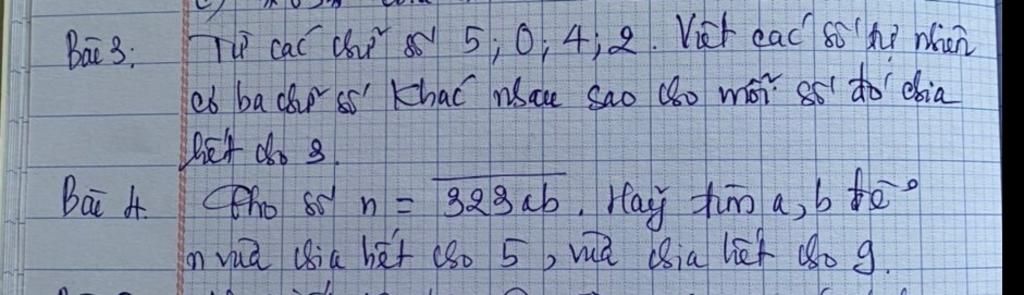 Bài 3: Từ các chữ số 5; 0; 4; 2. Viết các số tự nhiên
có ba chữ số khác nhau sao cho mỗi số đó chia
hết cho 3.
Bài 4. Cho số n = 323ab. Hãy tìm a, b để
n vừa chia hết cho 5, vừa chia hết cho 9.